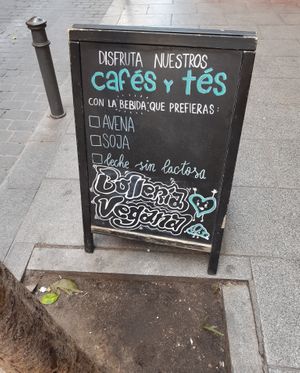 DISFRUTA NUESTROS
CAFÉS Y TÉS
CON LA BEBIDA QUE PREFIERAS:
AVENA
SOJA
leche sin lactosa
Bollería
Vegana